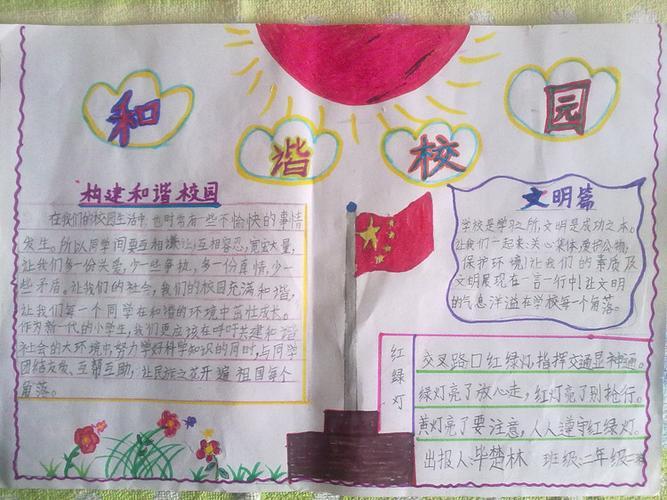 和谐校园
构建和谐校园
在我们的校园生活中,也时常有一些不愉快的事情
发生。所以同学间要互相谦让,互相容忍,宽宏大量,
让我们多一份关爱,少一些争执,多一份真情,少一
些矛盾。让我们的社会,我们的校园充满和谐,
让我们每一个同学在和谐的环境中茁壮成长。
作为新一代的小学生,我们更应该在呼吁共建和谐
社会的大环境中,努力学好科学知识的同时,与同学
团结友爱、互帮互助,让民族之花开遍祖国每个
角落。
文明篇
学校是学习之所,文明是成功之本。
让我们一起来:关心集体爱护公物,
保护环境!让我们的素质及
文明展现在一言一行中!让文明
的气息洋溢在学校每个角落。
红绿灯
交叉路口红绿灯,指挥交通显神通。
绿灯亮了放心走,红灯亮了别抢行。
黄灯亮了要注意,人人遵守红绿灯。
出报人:毕楚林 班级:二年级二